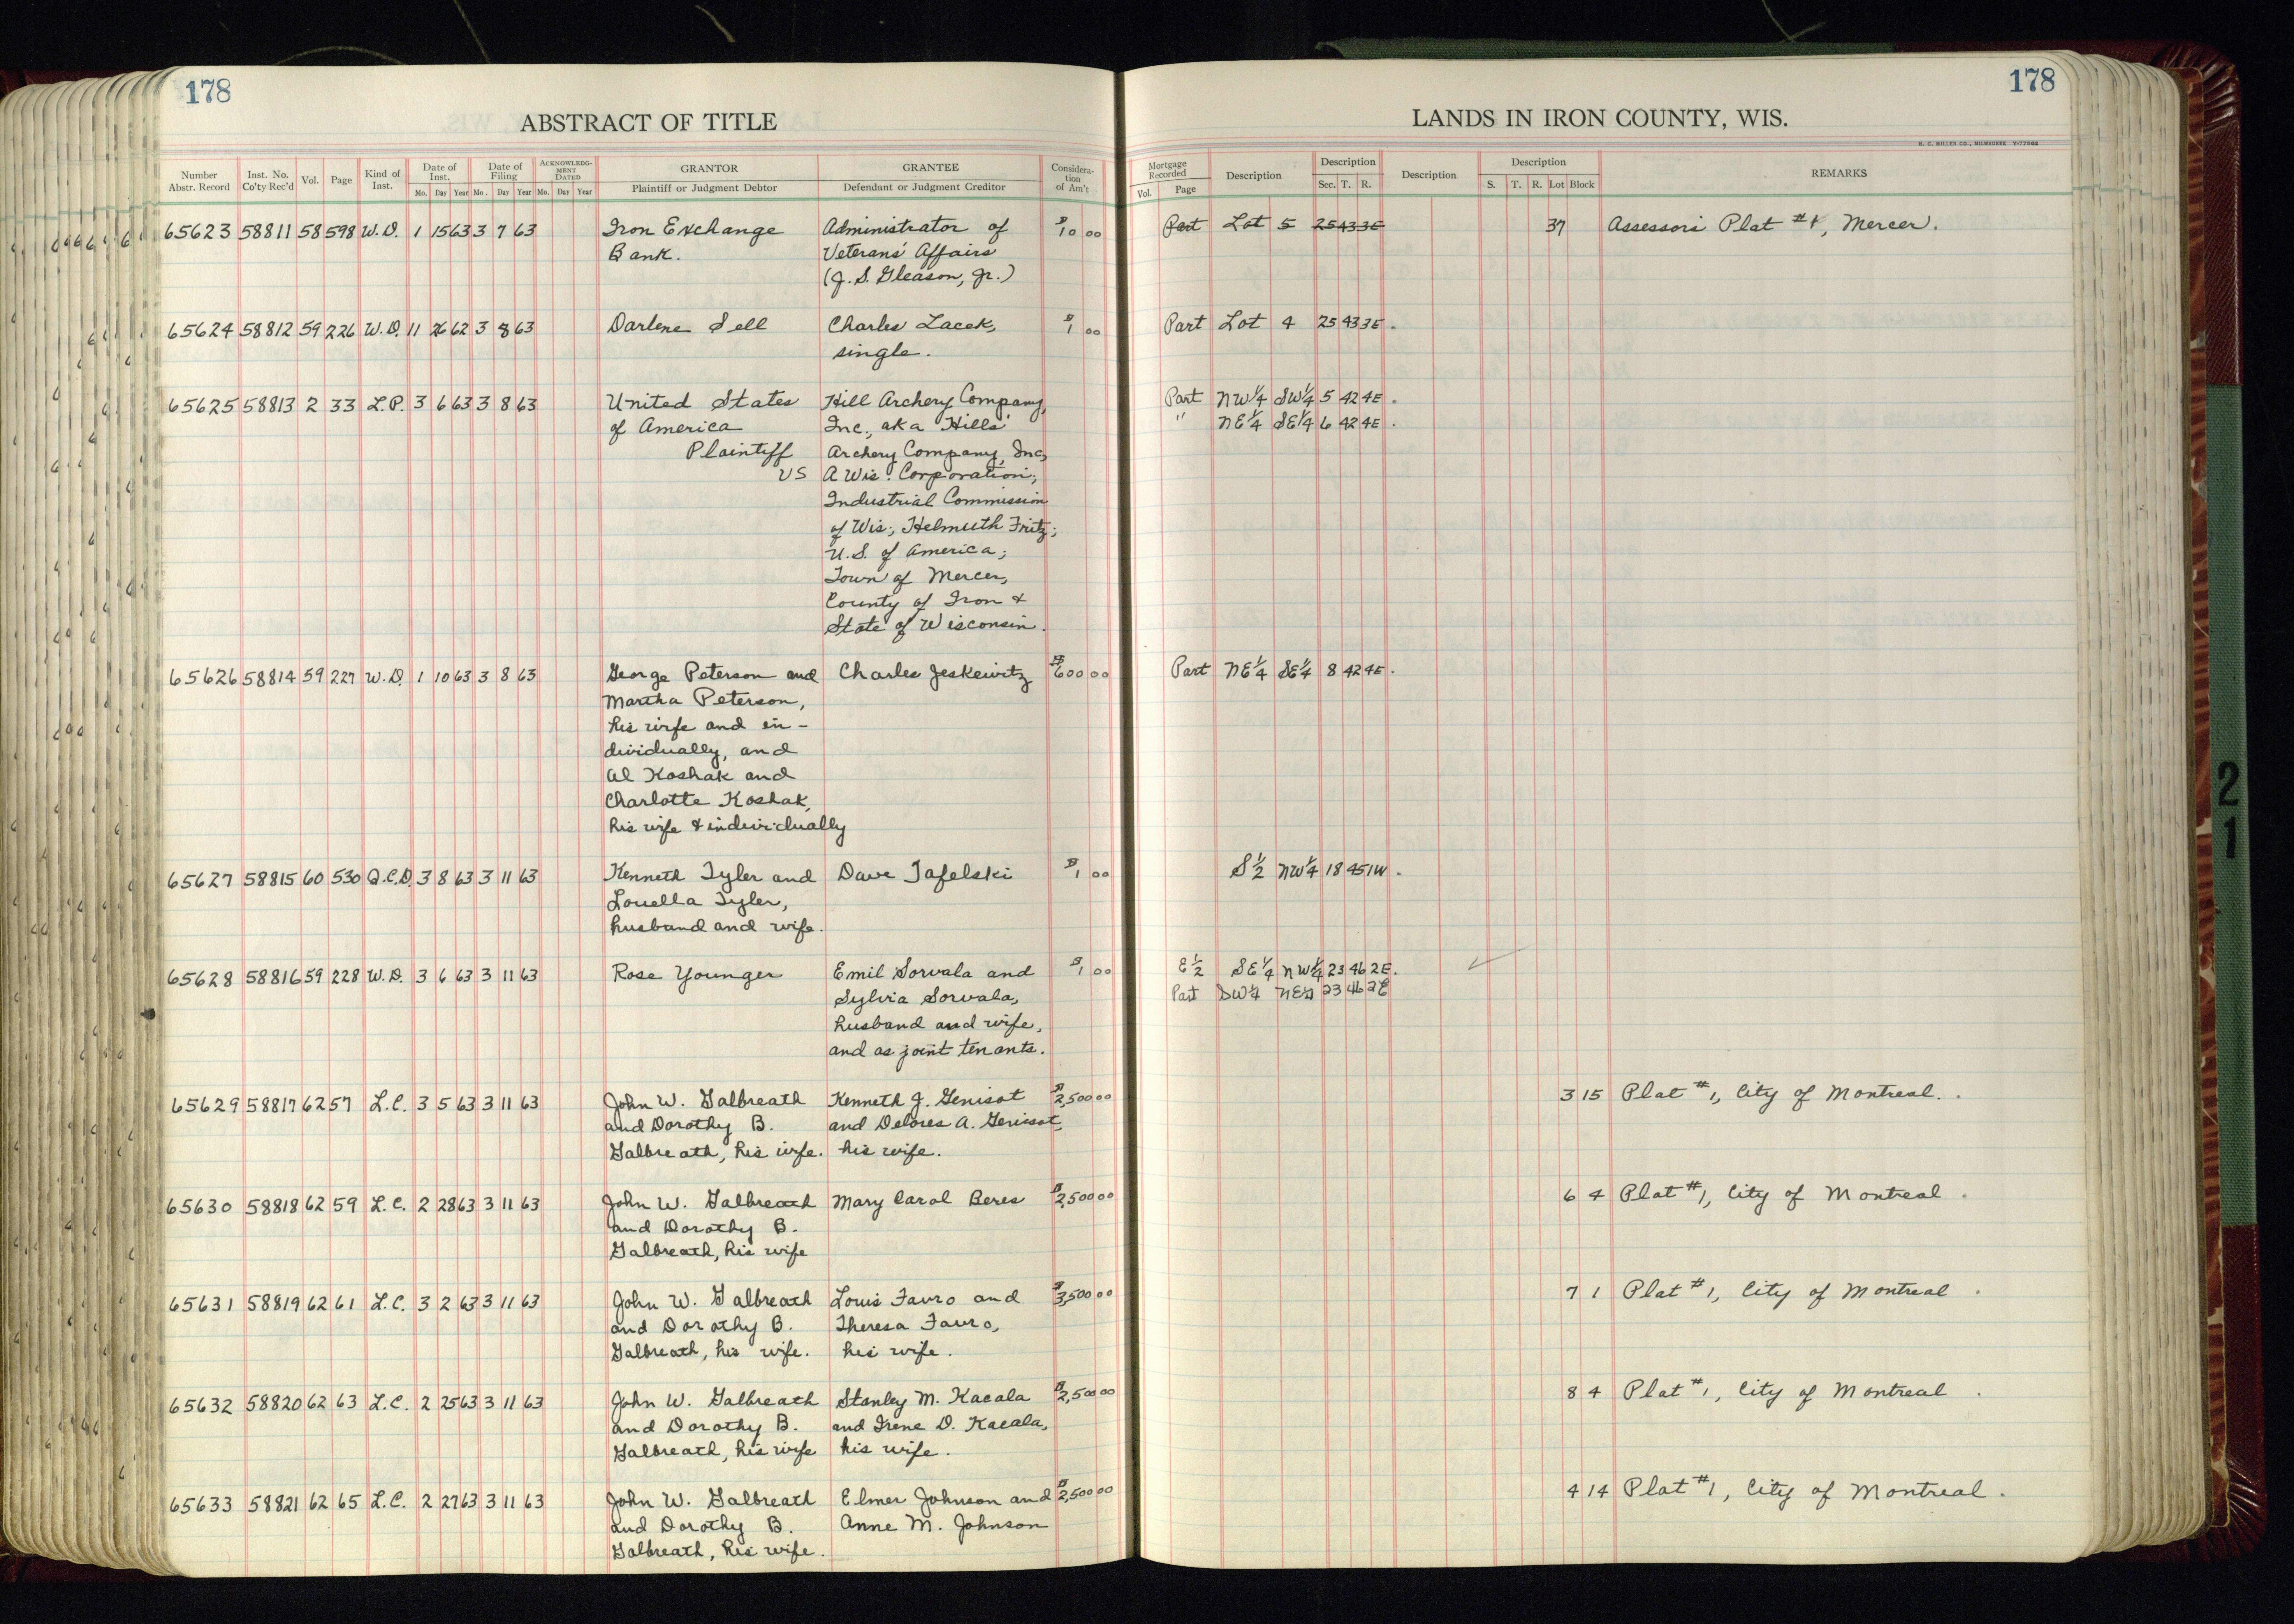 178
178
ABSTRACT OF TITLE
LANDS IN IRON COUNTY, WIS.
H. C. MILLER CO., MILWAUKEE
Number Abstr. Record
Inst. No. Co'ty Rec'd
Vol.
Page
Kind of Inst.
Date of Inst.
Mo. Day Year
Date of Filing
Mo. Day Year
ACKNOWLEDG-MENT DATED
Mo. Day Year
GRANTOR
Plaintiff or Judgment Debtor
GRANTEE
Defendant or Judgment Creditor
Considera-tion of Am't
Mortgage Recorded
Vol. Page
Description
Description
Sec. T. R.
Description
Description
S. T. R. Lot Block
REMARKS
65623 58811 58 598 W.D. 1 15 63 3 7 63 Iron Exchange Administrator of $10 00 Part Lot 5 25 43 3E 37 Assessors Plat #1, Mercer.
Bank. Veterans' Affairs
(J. S. Gleason, Jr.)
65624 58812 59 226 W.D. 11 26 62 3 8 63 Darlene Sell Charles Lacek, $1 00 Part Lot 4 25 43 3E.
single.
65625 58813 2 33 L.P. 3 6 63 3 8 63 United States Hill Archery Company, Part NW¼ SW¼ 5 42 4E.
of America Inc., aka Hills' " NE¼ SE¼ 6 42 4E.
Plaintiff Archery Company, Inc,
VS A Wis. Corporation;
Industrial Commission
of Wis.; Helmuth Fritz;
U.S. of America;
Town of Mercer,
County of Iron &
State of Wisconsin.
65626 58814 59 227 W.D. 1 10 63 3 8 63 George Peterson and Charles Jeskewitz $600 00 Part NE¼ SE¼ 8 42 4E.
Martha Peterson,
his wife and in-
dividually, and
Al Koshak and
Charlotte Koshak,
his wife & individually
65627 58815 60 530 Q.C.D. 3 8 63 3 11 63 Kenneth Tyler and Dave Tafelski $1 00 S½ NW¼ 18 45 1W.
Louella Tyler,
husband and wife.
65628 58816 59 228 W.D. 3 6 63 3 11 63 Rose Younger Emil Sorvala and $1 00 E½ SE¼ NW¼ 23 46 2E.
Sylvia Sorvala, Part SW¼ NE¼ 23 46 2E
husband and wife,
and as joint tenants.
65629 58817 62 57 L.C. 3 5 63 3 11 63 John W. Galbreath Kenneth J. Genisot $2,500 00 3 15 Plat #1, City of Montreal.
and Dorothy B. and Delores A. Genisot,
Galbreath, his wife. his wife.
65630 58818 62 59 L.C. 2 28 63 3 11 63 John W. Galbreath Mary Carol Beres $2,500 00 6 4 Plat #1, City of Montreal.
and Dorothy B.
Galbreath, his wife
65631 58819 62 61 L.C. 3 2 63 3 11 63 John W. Galbreath Louis Favro and $3,500 00 7 1 Plat #1, City of Montreal.
and Dorothy B. Theresa Favro,
Galbreath, his wife. his wife.
65632 58820 62 63 L.C. 2 25 63 3 11 63 John W. Galbreath Stanley M. Kacala $2,500 00 8 4 Plat #1, City of Montreal.
and Dorothy B. and Irene D. Kacala,
Galbreath, his wife his wife.
65633 58821 62 65 L.C. 2 27 63 3 11 63 John W. Galbreath Elmer Johnson and $2,500 00 4 14 Plat #1, City of Montreal.
and Dorothy B. Anne M. Johnson
Galbreath, his wife.
2
1